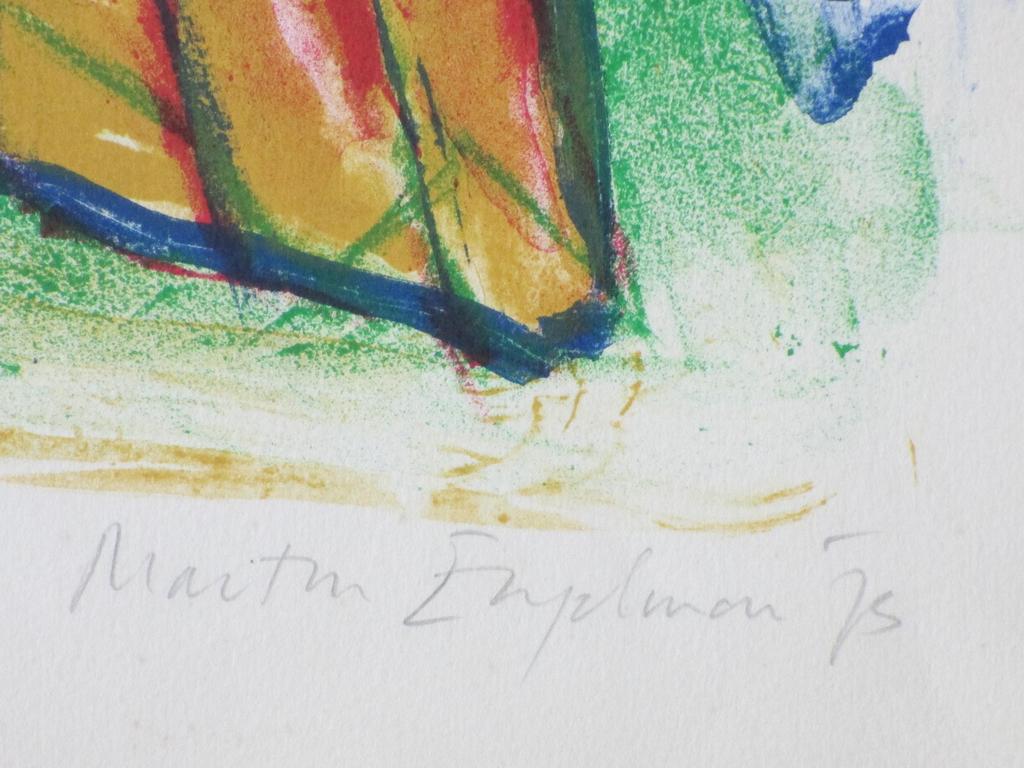 Martin Engelman 75